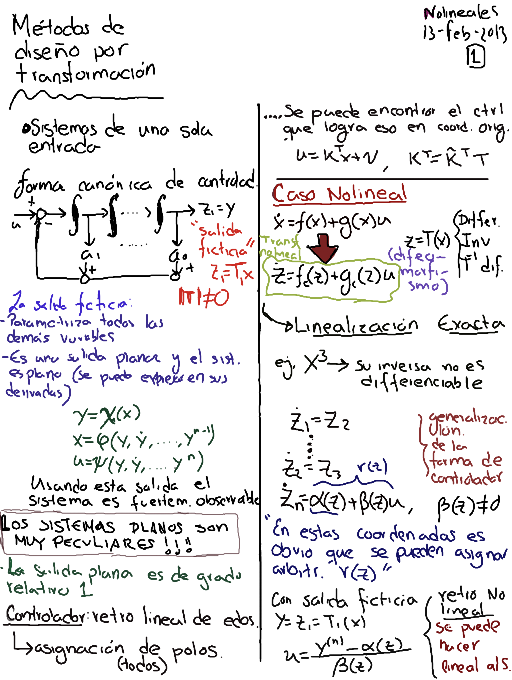 Métodos de
diseño por
transformación
Nolineales
13-feb-2013
1
•Sistemas de una sola
entrada
forma canónica de controlad.
u + - ∫ ∫ ... ∫ → z₁=y
a₁ a₀
+ +
"salida
ficticia"
z₁=T₁x
|T|≠0
La salida ficticia:
-Parametriza todas las
demás variables
-Es una salida plana y el sist.
es plano (se puede expresar en sus
derivadas)
y=χ(x)
x=φ(y, ẏ, ..., yⁿ⁻¹)
u=ψ(y, ẏ, ..., yⁿ)
Usando esta salida el
sistema es fuertem. observable
LOS SISTEMAS PLANOS son
MUY PECULIARES !!!
-La salida plana es de grado
relativo 1
Controlador: retro lineal de edos.
↳asignación de polos.
(todos)
....Se puede encontrar el ctrl
que logra eso en coord. orig.
u=Kᵀx+v, Kᵀ=K̂ᵀT
Caso Nolineal
ẋ=f(x)+g(x)u
Transf
z=T(x)
(difeo-
morfi-
smo)
Difer.
Inv
T⁻¹ dif.
ż=f_c(z)+g_c(z)u
↳Linealización Exacta
ej. X³→ su inversa no es
diferenciable
ż₁=z₂
ż₂=z₃ r(z)
żn=α(z)+β(z)u, β(z)≠0
generalizac
ion.
de la
forma de
controlador
"En estas coordenadas es
obvio que se pueden asignar
arbitr. "r(z)"
Con salida ficticia
y=z₁=T₁(x)
u= y⁽ⁿ⁾-α(z) / β(z)
retro No
lineal
se puede
hacer
lineal al S.